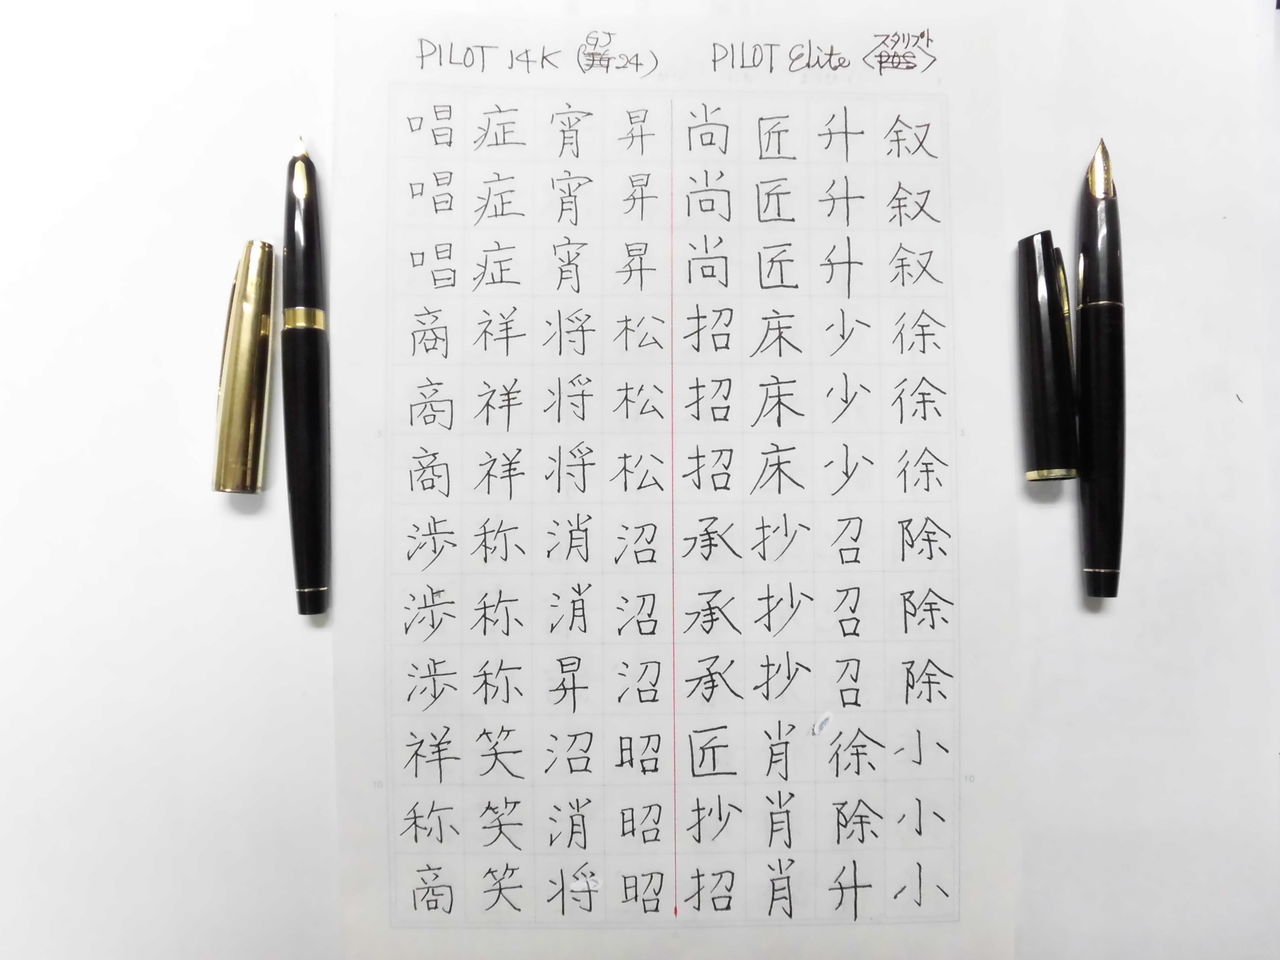 PILOT 14K (GJ24)
PILOT Elite〈スクリプト〉
叙叙叙徐徐徐除除除小小小
升升升少少少召召召徐除升
匠匠匠床床床抄抄抄肖肖肖
尚尚尚招招招承承承匠抄招
昇昇昇松松松沼沼沼昭昭昭
宵宵宵将将将消消昇沼消将
症症症祥祥祥称称称笑笑笑
唱唱唱商商商渉渉渉祥称商